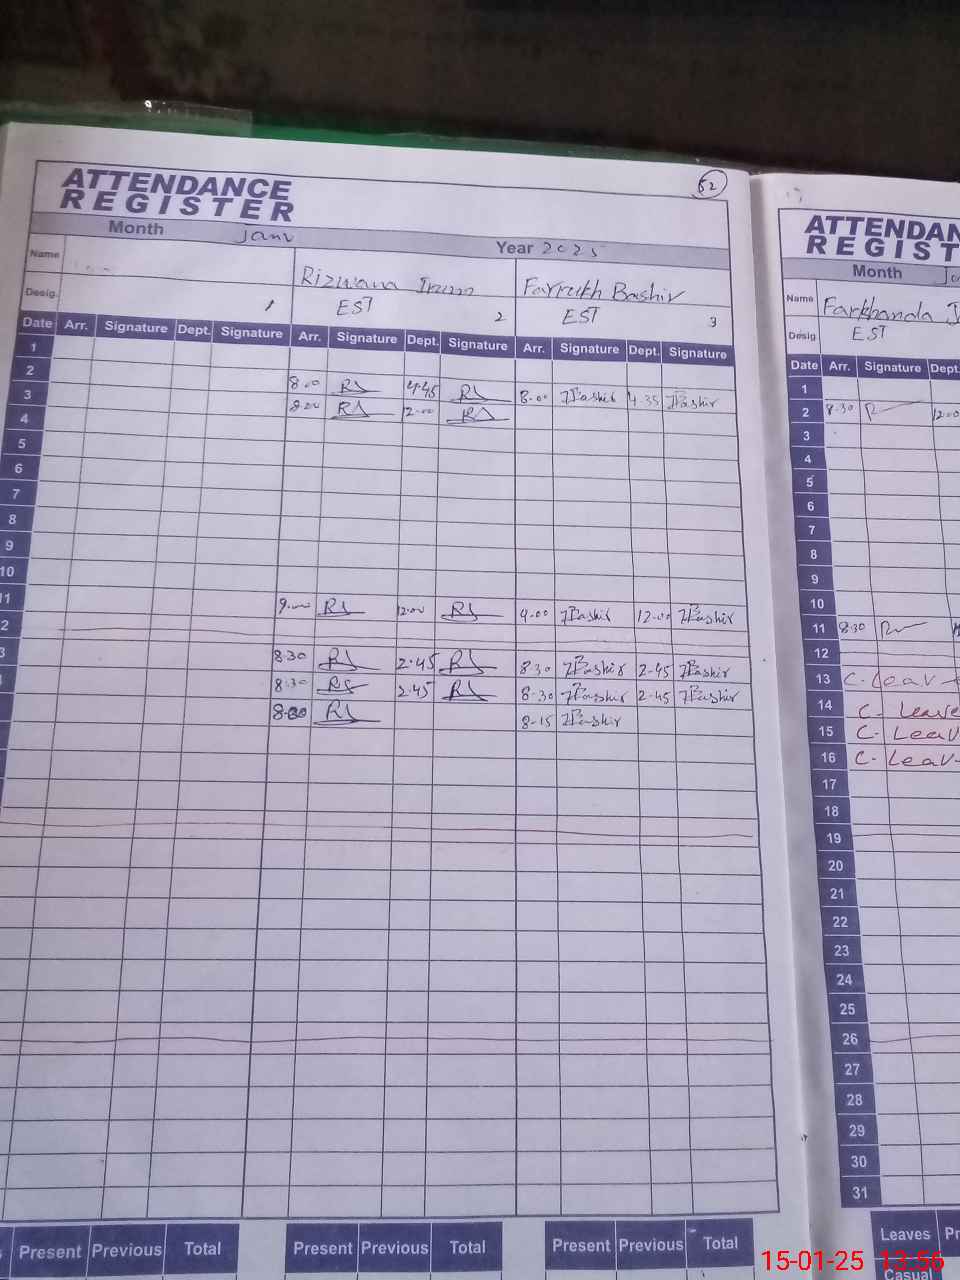 52
ATTENDANCE
REGISTER
Month Janu Year 2025
Name Rizwana Irum Farrukh Bashir
Desig. 1 EST 2 EST 3
Date Arr. Signature Dept. Signature Arr. Signature Dept. Signature Arr. Signature Dept. Signature
1
2
3 8.00 RS 4.45 RS 8.00 FBashir 4.35 FBashir
4 8.00 RS 12.00 RS
5
6
7
8
9
10
11 9.00 RS 12.00 RS 9.00 FBashir 12.00 FBashir
2
3 8.30 RS 2.45 RS 8.30 FBashir 2-45 FBashir
8.30 RS 2.45 RS 8-30 FBashir 2-45 FBashir
8.00 RS 8-15 FBashir
Present Previous Total Present Previous Total Present Previous Total
ATTENDAN
REGIST
Month
Name Farkhanda
Desig EST
Date Arr. Signature Dept.
1
2 8.30 12.00
3
4
5
6
7
8
9
10
11 8.30
12
13 C. Leav
14 C. Leave
15 C. Leav
16 C. Leav
17
18
19
20
21
22
23
24
25
26
27
28
29
30
31
Leaves Pr
Casual
15-01-25 13:56